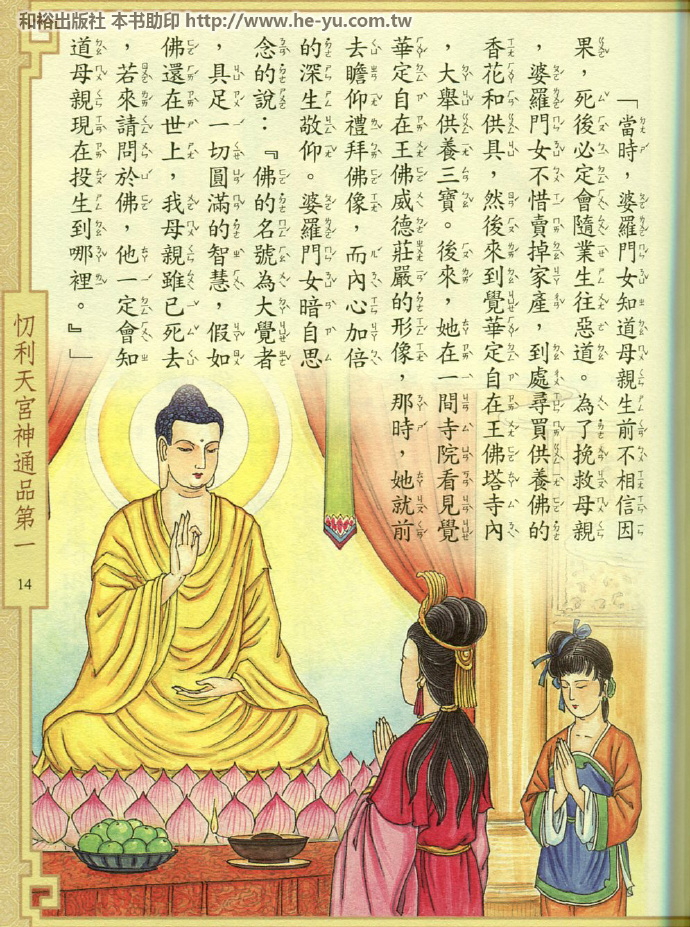 和裕出版社 本书助印 http://www.he-yu.com.tw
「當時，婆羅門女知道母親生前不相信因
果，死後必定會隨業生往惡道。為了挽救母親
，婆羅門女不惜賣掉家產，到處尋買供養佛的
香花和供具，然後來到覺華定自在王佛塔寺內
，大舉供養三寶。後來，她在一間寺院看見覺
華定自在王佛威德莊嚴的形像，那時，她就前
去瞻仰禮拜佛像，而內心加倍
的深生敬仰。婆羅門女暗自思
念的說：『佛的名號為大覺者
，具足一切圓滿的智慧，假如
佛還在世上，我母親雖已死去
，若來請問於佛，他一定會知
道母親現在投生到哪裡。』」
忉利天宮神通品第一
14